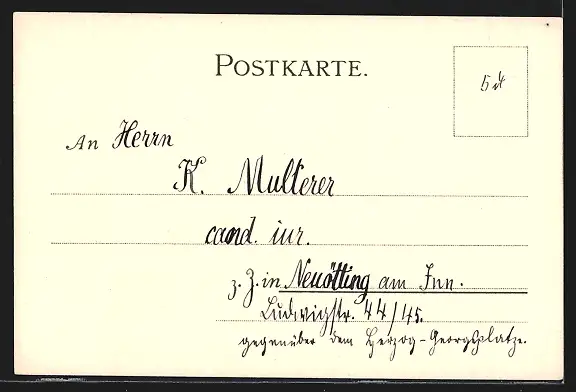 POSTKARTE.
5 ₰
An Herrn
K. Multerer
cand. iur.
z. Z. in Neuötting am Inn.
Ludwigstr. 44/45.
gegenüber dem Herzog-Georgsplatze.